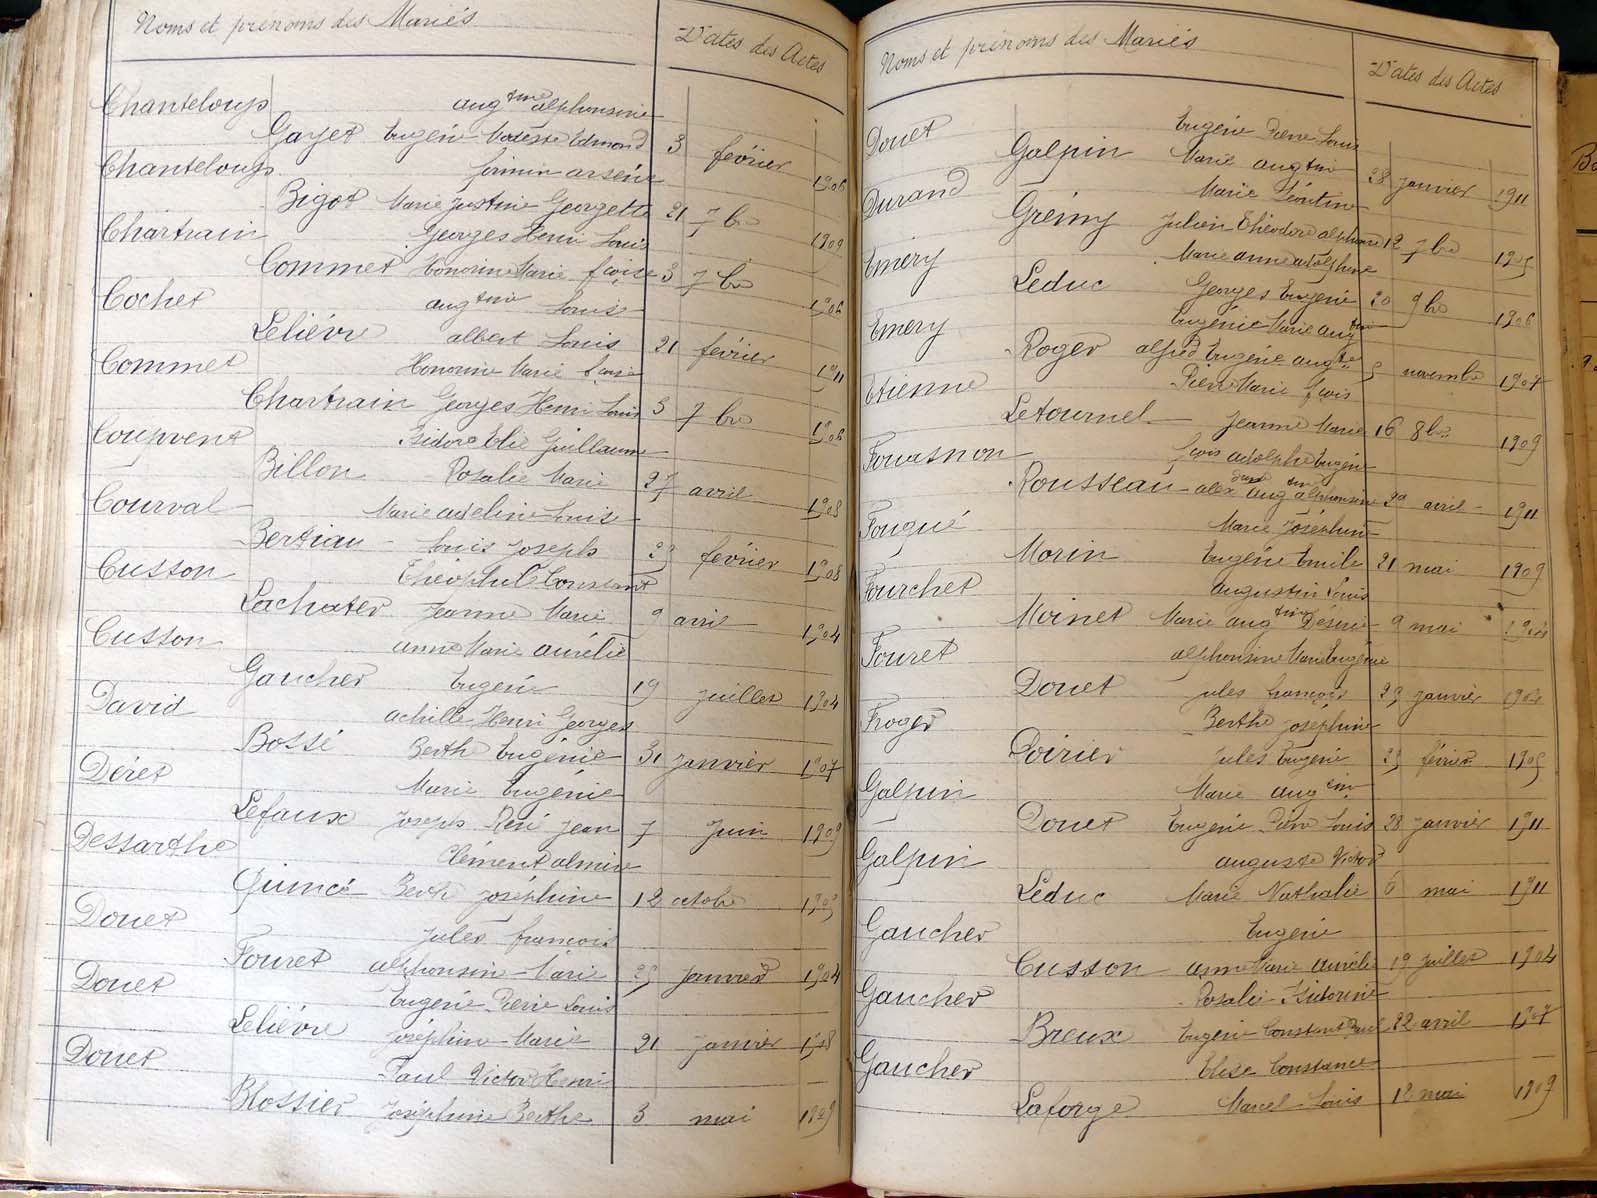 Noms et prénoms des Mariés
Dates des Actes
Chanteloup aug tine alphonsine
Gayet Eugène Modeste Edmond 3 février 1906
Chanteloup firmin arsène
Bigot Marie Justine Georgette 21 7 bre 1909
Chartrain Georges Henri Louis
Commet Honorine Marie fçoise 3 7 bre 1906
Cochet aug tine Louise
Lelièvre albert Louis 21 février 1911
Commet Honorine Marie fçoise
Chartrain Georges Henri Louis 3 7 bre 1906
Coupvent Isidore Elie Guillaume
Billon Rosalie Marie 27 avril 1908
Courval Marie adeline Louise
Bertiau Louis Joseph 23 février 1908
Cusson Théophile Constant
Lachater Jeanne Marie 9 avril 1904
Cusson anne Marie aurélie
Gaucher Eugène 19 juillet 1904
David achille Henri Georges
Bossé Berthe Eugénie 31 janvier 1907
Déret Marie Eugénie
Lefaux Joseph René Jean 7 Juin 1909
Dessarthe Clément almire
Quincé Berthe joséphine 12 octobre
Douet Jules françois
Fouret alphonsine Marie janvier 1904
Douet Eugène Pierre Louis
Lelièvre joséphine Marie 21 janvier 1908
Douet Paul Victor Henri
Blossier Joséphine Berthe 3 mai 1909
Noms et prénoms des Mariés
Dates des Actes
Douet Eugène Pierre Louis
Galpin Marie aug tine 28 janvier 1911
Durand Marie Léontine
Grémy Julien Théodore alphonse 12 7 bre 1905
Emery Marie anne adolphine
Leduc Georges Eugène 20 9 bre 1906
Emery Eugénie Marie aug tine
Roger alfred Eugène aug te 5 novembre 1907
Etienne Pierre Marie fçois
Letournel Jeanne Marie 16 8 bre 1909
Fouasnon fçois adolphe Eugène
Rousseau alex dine aug tine alphonsine 20 avril 1911
Fouqué Marie Joséphine
Morin Eugène Emile 21 mai 1909
Fourchet augustin Louis
Moinet Marie aug tine Désirée 9 mai
Fouret alphonsine Marie Eugénie
Douet Jules françois 23 janvier 1904
Froger Berthe joséphine
Poirier Jules Eugène 23 février 1905
Galpin Marie aug tine
Douet Eugène Pierre Louis 28 janvier 1911
Galpin auguste Victor
Leduc Marie Nathalie 6 mai 1911
Gaucher Eugène
Cusson anne Marie aurélie 19 juillet 1904
Gaucher Rosalie Isidorine
Breux Eugène Constant Paul 22 avril 1907
Gaucher Elise Constance
Laforge Marcel Louis 12 mai 1909